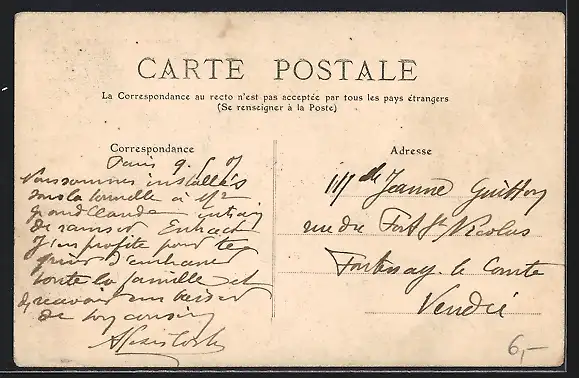 CARTE POSTALE
La Correspondance au recto n'est pas acceptée par tous les pays étrangers
(Se renseigner à la Poste)
Correspondance
Adresse
Paris 9.
Nous sommes installés
sous la tonnelle à
grand Claude
de
J'en profite pour te
prier d'embrasser
toute la famille et
de recevoir un baiser
de ton cousin
Mlle Jeanne Guitton
rue du Fort St Nicolas
Fontenay le Comte
Vendée
6,-